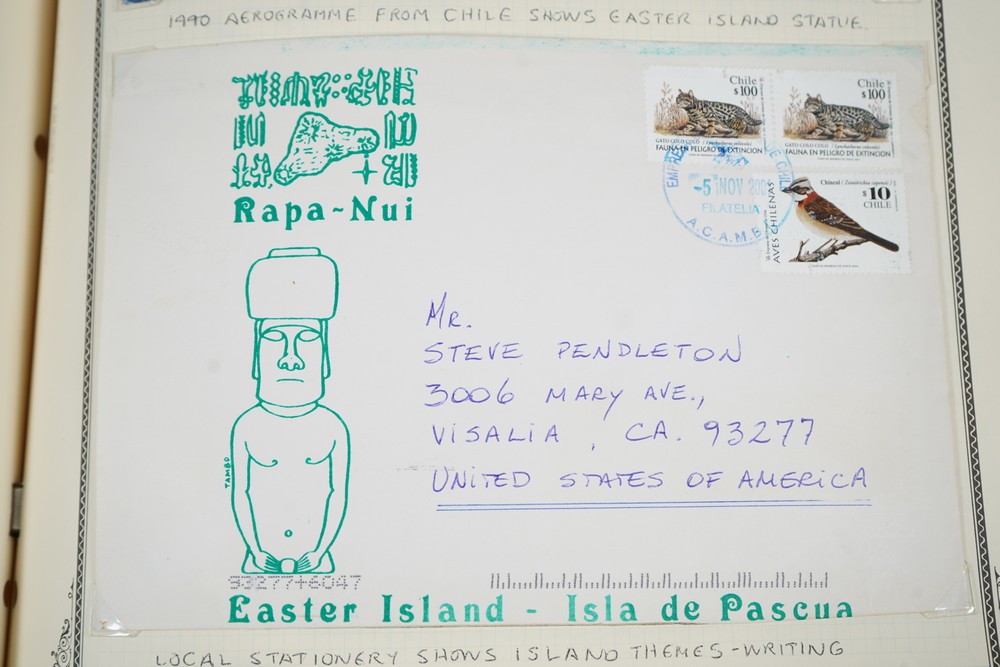 1990 AEROGRAMME FROM CHILE SHOWS EASTER ISLAND STATUE.
Rapa-Nui
Chile
$100
GATO COLO COLO
FAUNA EN PELIGRO DE EXTINCION
Chile
$100
GATO COLO COLO
FAUNA EN PELIGRO DE EXTINCION
-5 NOV
FILATELIA
A.C.A.M.B
Chincol
$10
CHILE
AVES CHILENAS
TAMBO
Mr.
STEVE PENDLETON
3006 MARY AVE.,
VISALIA, CA. 93277
UNITED STATES OF AMERICA
93277+6047
Easter Island - Isla de Pascua
LOCAL STATIONERY SHOWS ISLAND THEMES-WRITING